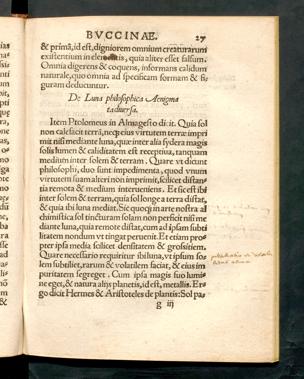 BVCCINAE. 27
& primā, id est, digniorem omnium creaturarum
existentium in elementis, quia aliter esset falsum.
Omnia digerens & coquens, informans calidum
naturale, quo omnia ad specificam formam & fi
guram deducuntur.
De Luna philosophica Aenigma
ta diuersa.
Item Ptolomeus in Almagesto dicit. Quia sol
non calefacit terrā, neq; eius virtutem terræ impri
mit nisi mediante luna, quæ inter alia sydera magis
solis lumen & caliditatem est receptiua, tanquam
medium inter solem & terram. Quare vt dicunt
philosophi, duo sunt impedimenta, quod vnum
virtutem suam alteri non imprimit, scilicet distan
tia remota & medium interueniens. Et sic est ibi
inter solem & terram, quia sol longe a terra distat,
& quia ibi luna mediat. Sic quoq; in arte nostra al
chimistica sol tincturam solam non perficit nisi me
diante luna, quia remote distat, cum ad ipsam subti
litatem nondum vt tingat peruenit. Et etiam pro=
pter ipsa media scilicet densitatem & grossitiem.
Quare necessario requiritur ibi luna, vt ipsum so=
lem subtiliet, rarum & volatilem faciat, & eius im
puritatem segreget. Cum ipsa magis suo lumi=
ne eget, & natura alijs planetis, id est, metallis. Er=
go dicit Hermes & Aristoteles de plantis: Sol pa=
g iij